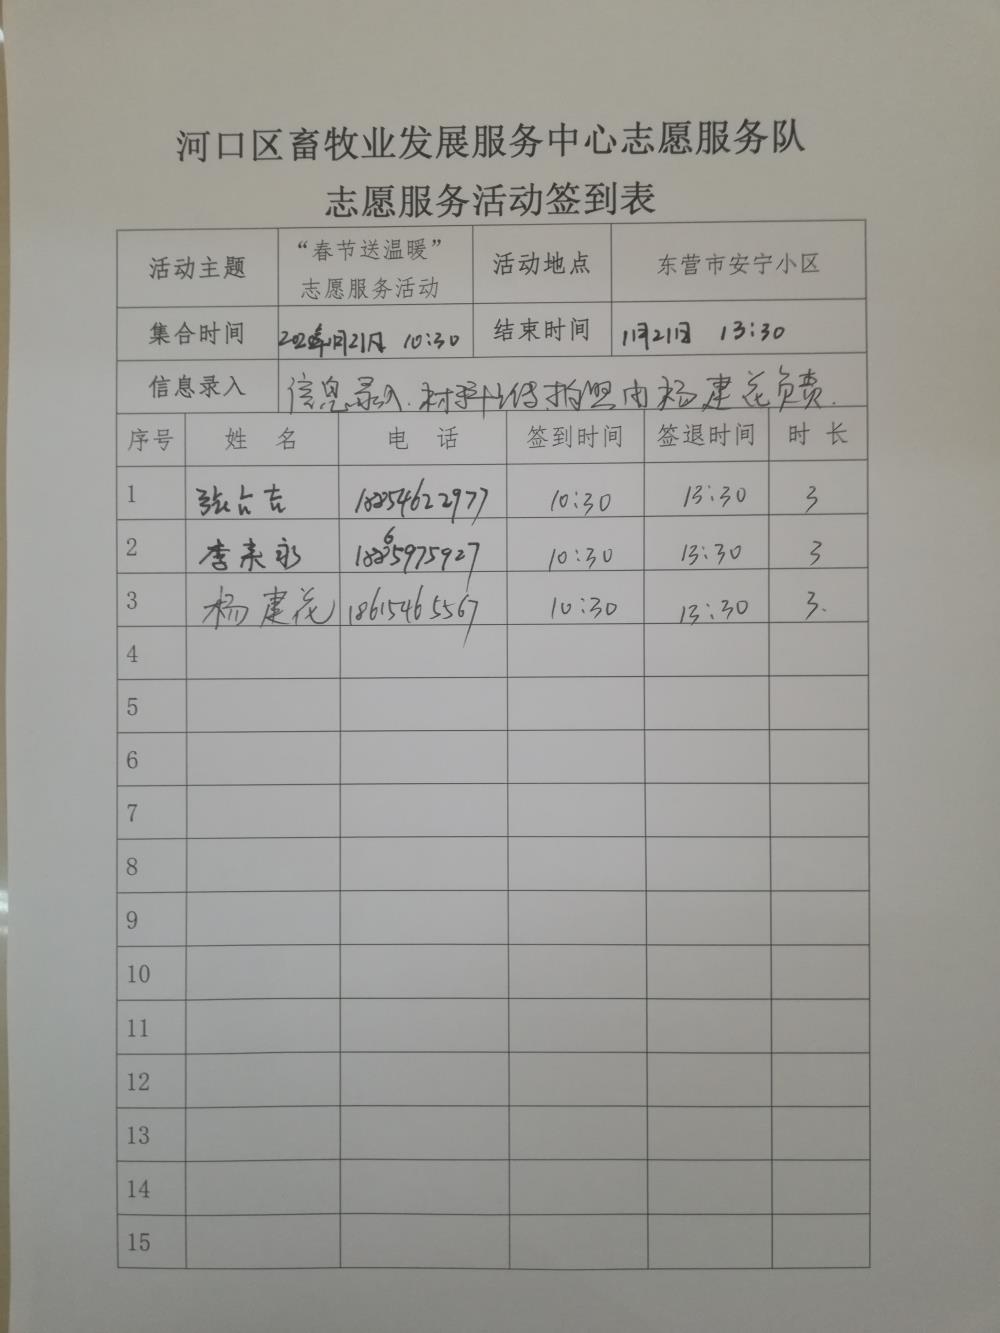 河口区畜牧业发展服务中心志愿服务队
志愿服务活动签到表
活动主题 “春节送温暖” 志愿服务活动 活动地点 东营市安宁小区
集合时间 1月21日 10:30 结束时间 1月21日 13:30
信息录入 信息录入.材料上传.拍照由杨建花负责.
序号 姓名 电话 签到时间 签退时间 时长
1 张 吉 10:30 13:30 3
2 李来永 10:30 13:30 3
3 杨建花 18615465567 10:30 13:30 3.
4
5
6
7
8
9
10
11
12
13
14
15